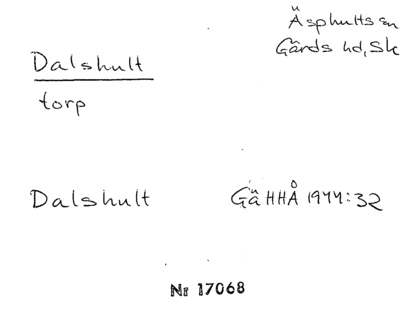 Äsphults sn
Gärds hd, Sk
Dalshult
torp
Dalshult GäHHÅ 1944:32
Nr 17068